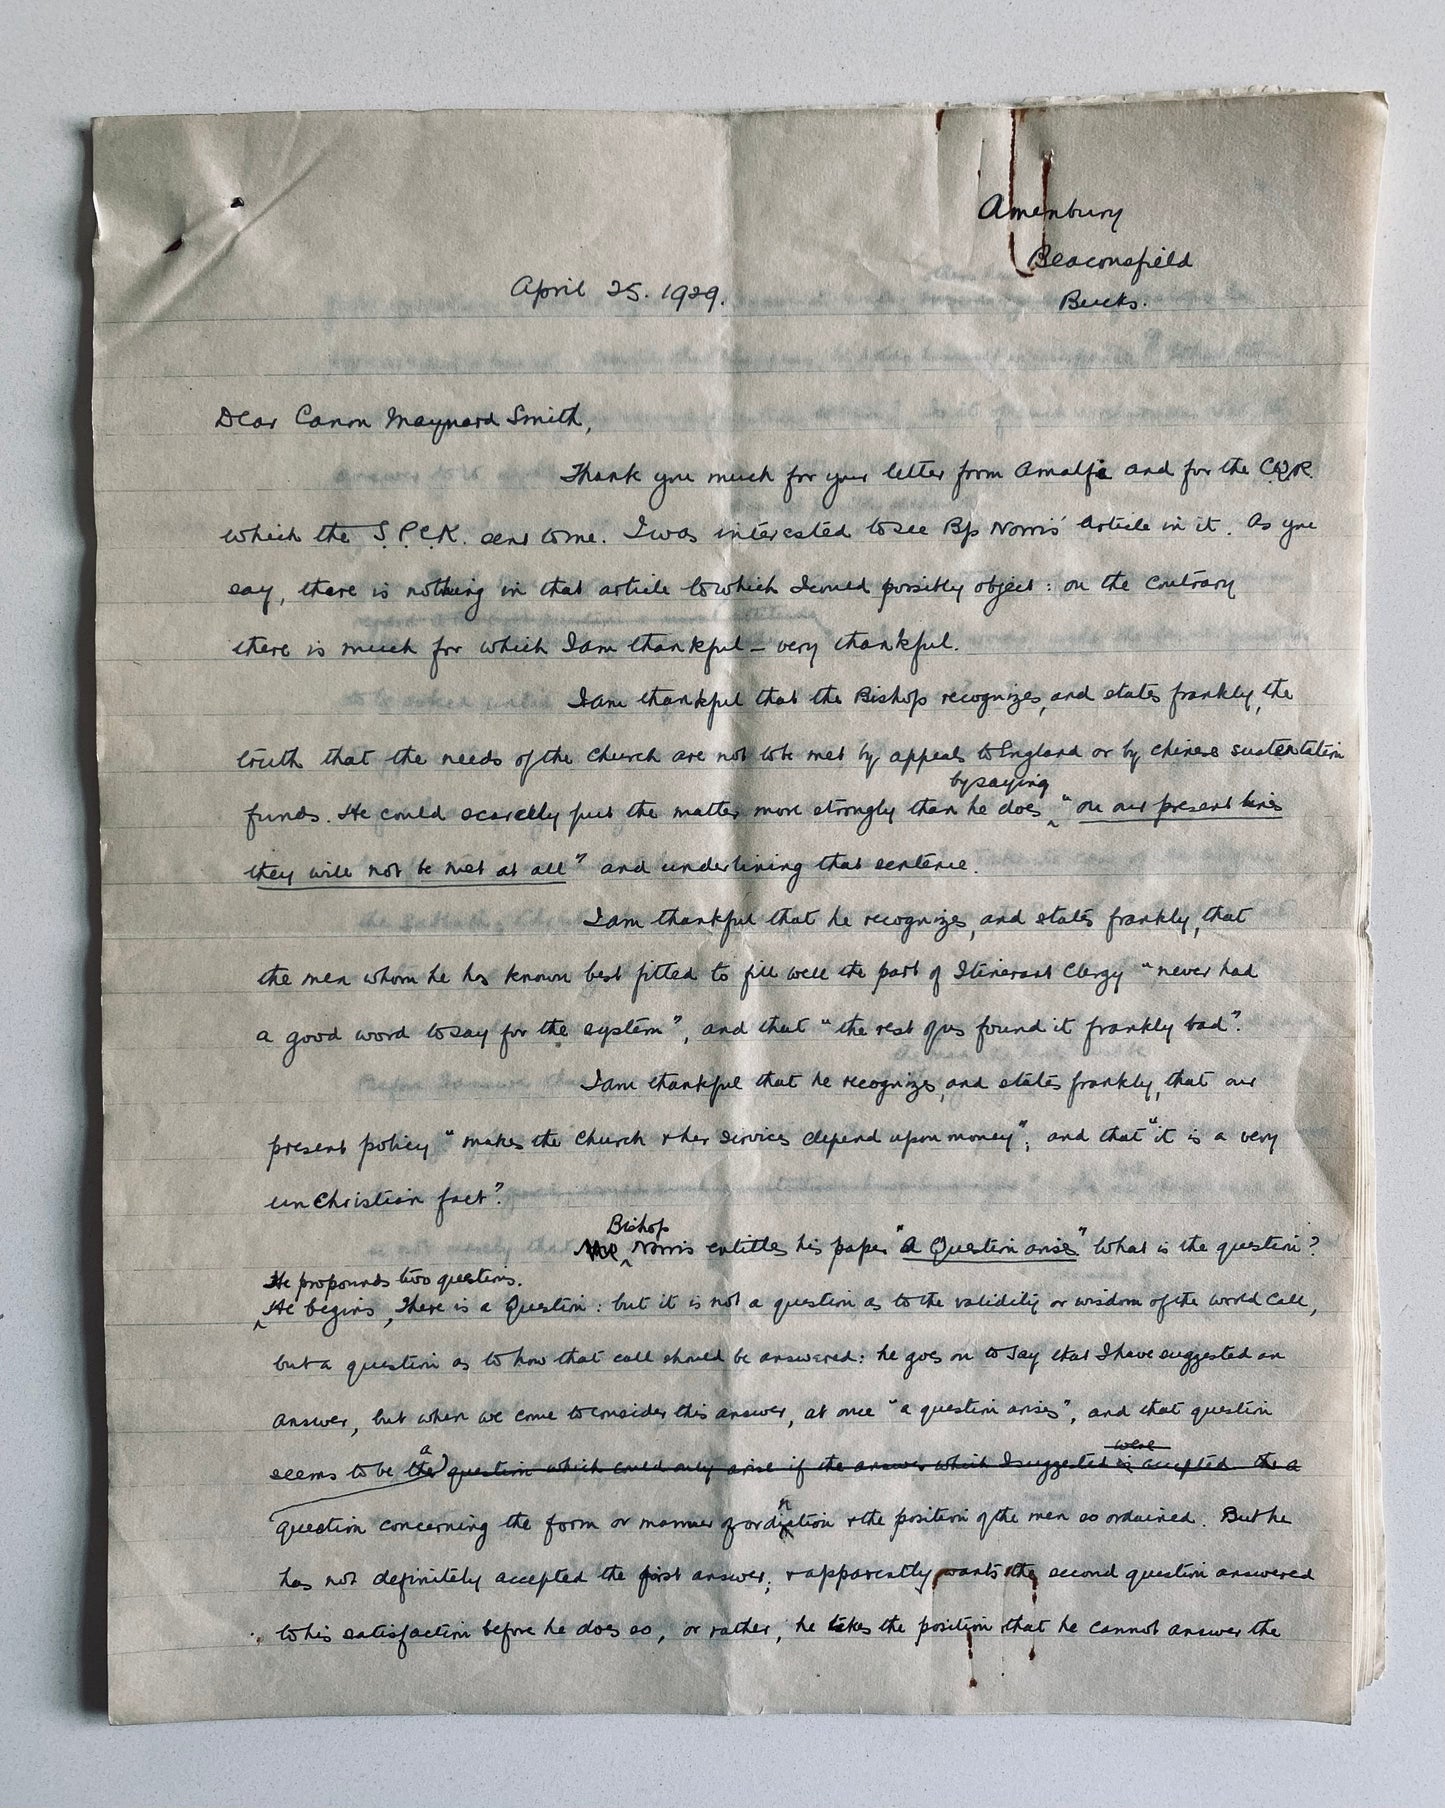 Amenbury
Beaconsfield
Bucks.
April 25. 1929.
Dear Canon Maynard Smith,
Thank you much for your letter from Amalfi and for the C.Q.R.
which the S.P.C.K. sent to me. I was interested to see Bp Norris' article in it. As you
say, there is nothing in that article to which I could possibly object: on the contrary
there is much for which I am thankful – very thankful.
I am thankful that the Bishop recognizes, and states frankly, the
truth that the needs of the Church are not to be met by appeals to England or by Chinese sustentation
by saying
funds. He could scarcely put the matter more strongly than he does "on our present lines
they will not be met at all" and underlining that sentence.
I am thankful that he recognizes, and states frankly, that
the men whom he has known best fitted to fill well the part of Itinerant Clergy "never had
a good word to say for the system", and that "the rest of us found it frankly bad".
I am thankful that he recognizes, and states frankly, that our
present policy "makes the Church & her services depend upon money", and that "it is a very
unChristian fact".
Bishop
Norris entitles his paper "A Question arises" What is the question?
He propounds two questions.
He begins, There is a Question: but it is not a question as to the validity or wisdom of the world call,
but a question as to how that call should be answered: he goes on to say that I have suggested an
answer, but when we come to consider this answer, at once "a question arises", and that question
a
were
seems to be the question which could only arise if the answer which I suggested is accepted. the a
question concerning the form or manner of ordination & the position of the men so ordained. But he
has not definitely accepted the first answer; & apparently wants the second question answered
to his satisfaction before he does so, or rather, he takes the position that he cannot answer the